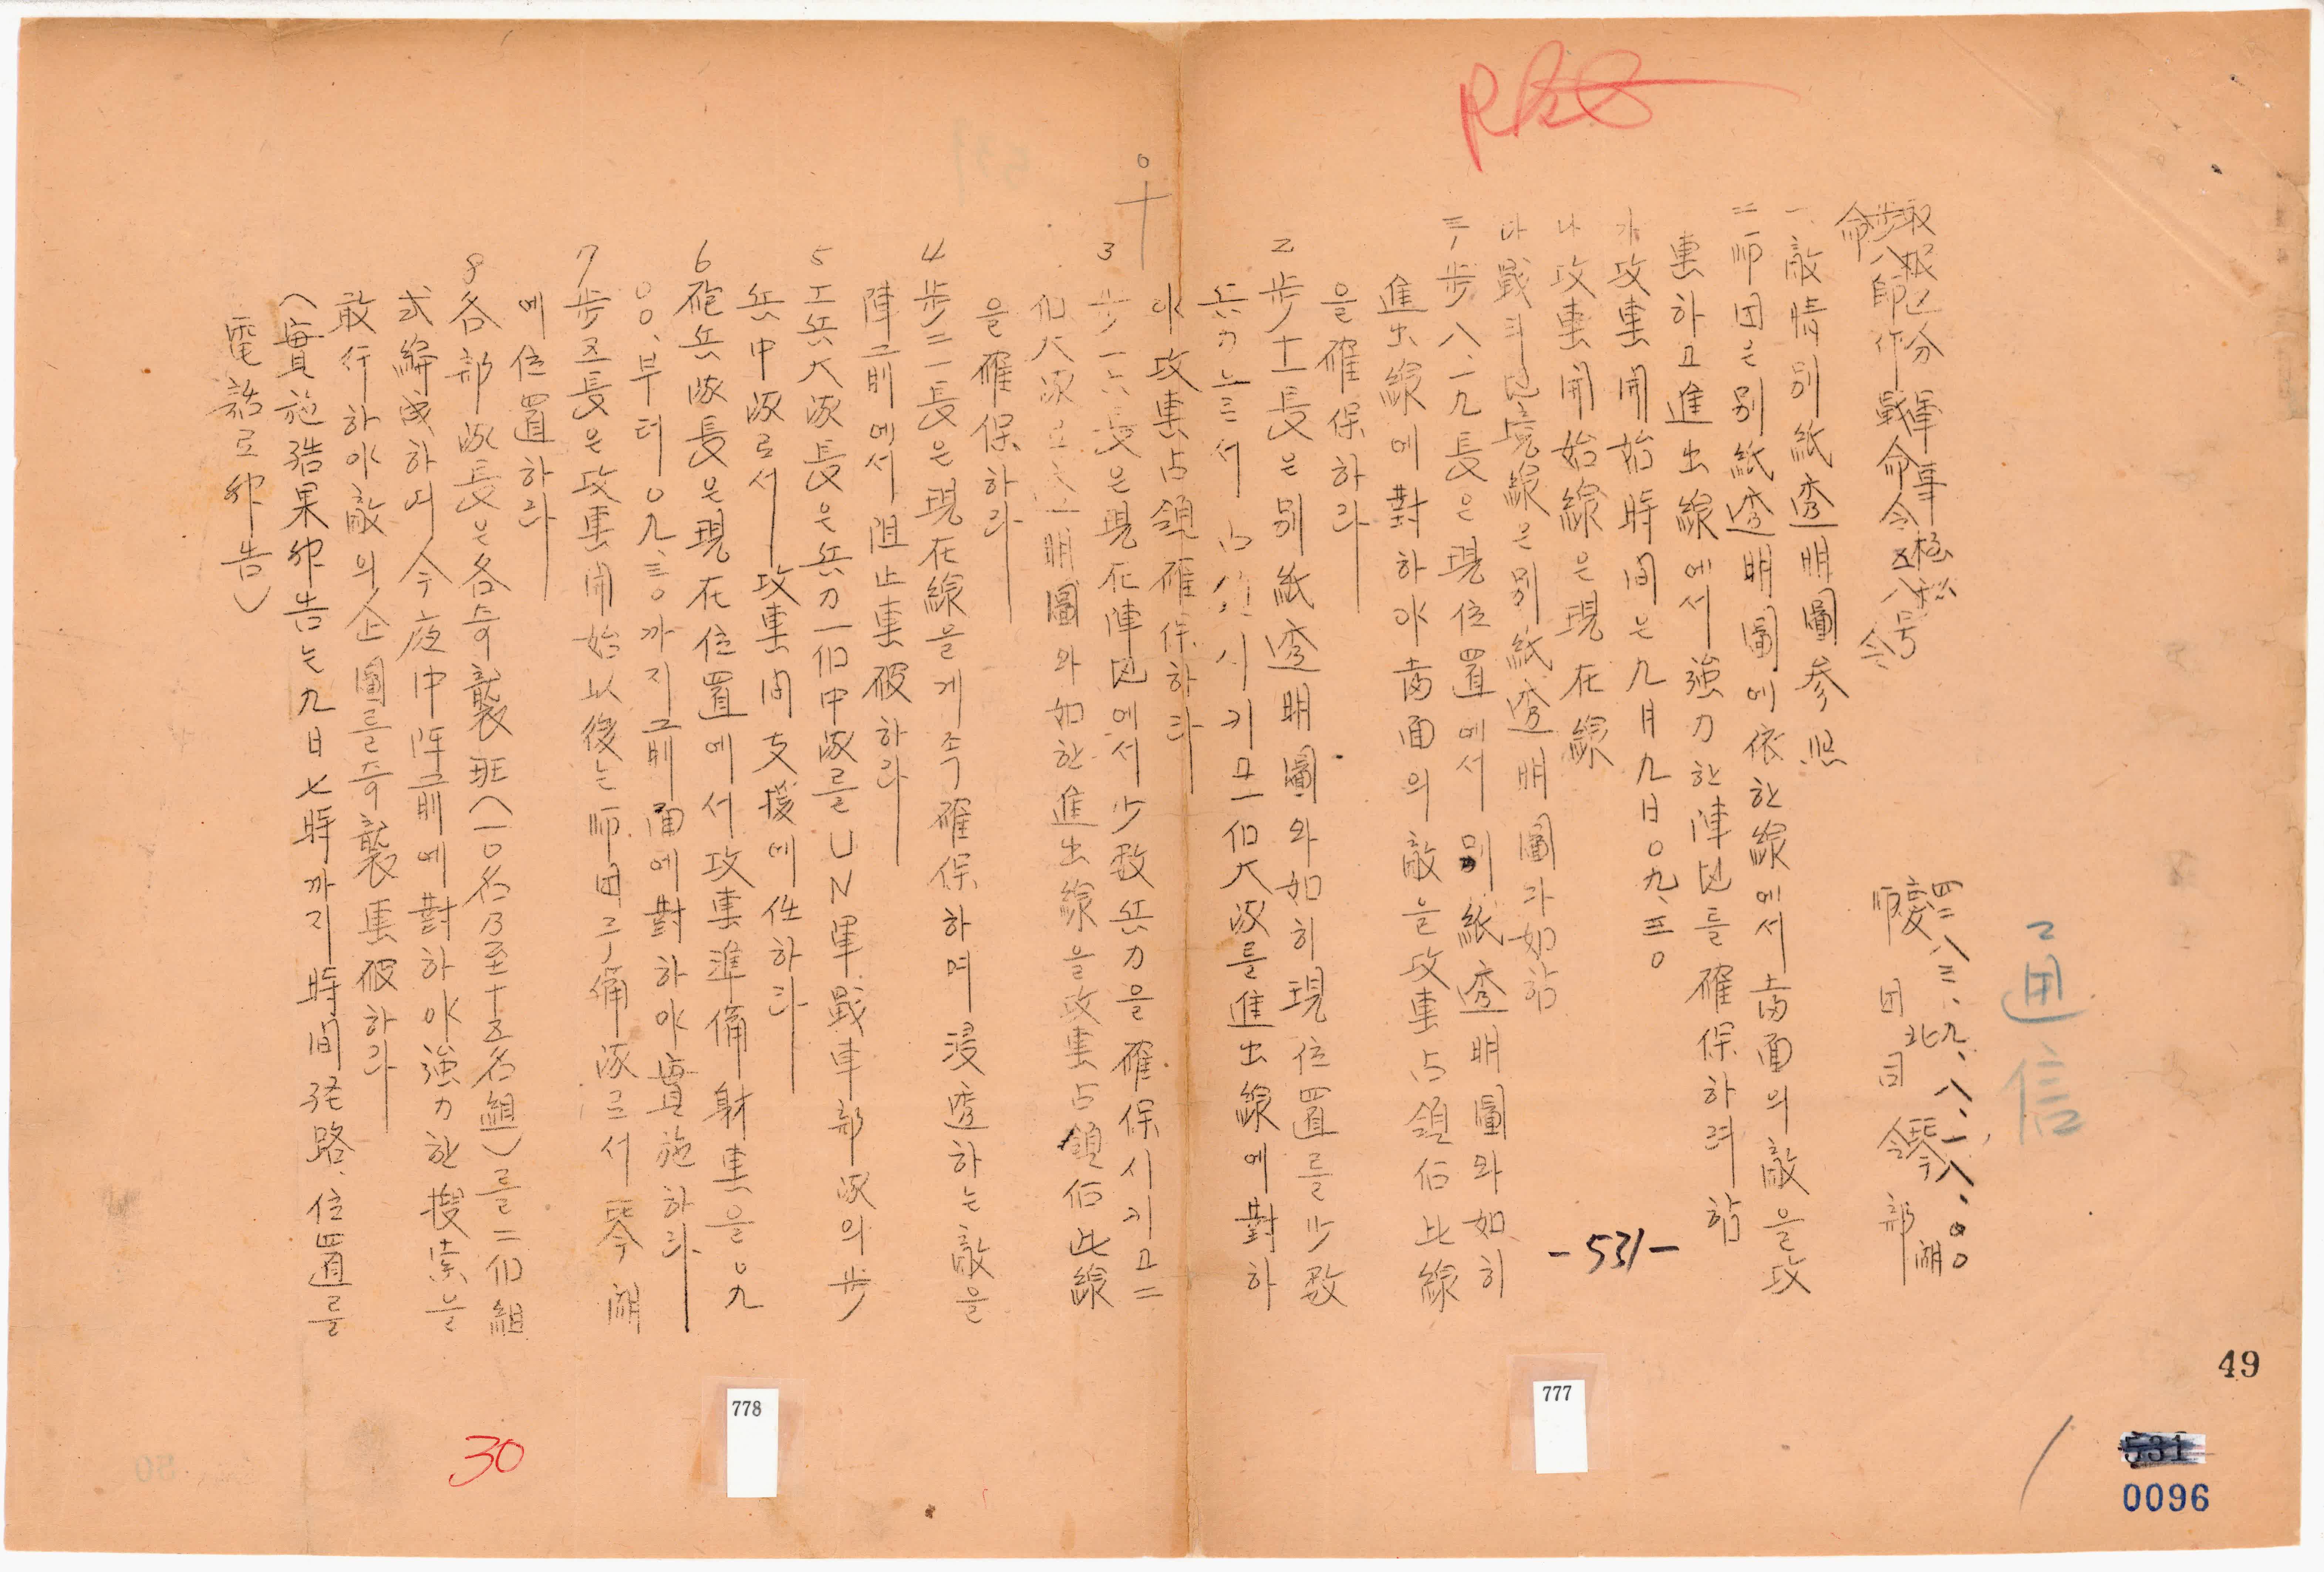 通信
取扱区分 軍事極秘
步八師作戰命令五八号
命令
四二八三、九、八、一八、００
慶北 琴湖
師団司令部
一、敵情別紙透明圖参照
二 師団은別紙透明圖에依한線에서當面의敵을攻
擊하고進出線에서強力한陣地를確保하려함
가 攻擊開始時間은九月九日０九、三０
나 攻擊開始線은現在線
다 戰斗地境線은別紙透明圖과如함
三 步八、一九長은現位置에서別紙透明圖와如히
進出線에對하야當面의敵을攻擊占領后此線
을確保하라
2 步十一長은別紙透明圖와如히現位置를少数
兵力으로서占領시키고一個大隊를進出線에對하
야攻擊占領確保하라
3 步一六長은現在陣地에서少数兵力을確保시키고二
個大隊로 透明圖와如한進出線을攻擊占領后此線
을確保하라
4 步二一長은現在線을계속確保하며浸透하는敵을
陣前에서阻止擊破하라
5 工兵大隊長은兵力一個中隊를UN軍戰車部隊의步
兵中隊로서攻擊間支援에任하라
6 砲兵隊長은現在位置에서攻擊準備射擊을０九
００、부터０九、三０까지前面에對하야實施하라
7 步五長은攻擊開始以後는師団予備隊로서琴湖
에位置하라
8 各部隊長은各奇襲班(一０名乃至十五名組)를二個組
式編成하며今夜中陣前에對하야強力한搜索을
敢行하야敵의企圖를奇襲擊破하라
(實施結果報告는九日七時까지時間経路、位置를
電話로報告)
-531-
777
778
30
49
531
0096